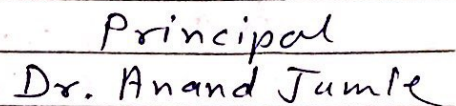 Principal
Dr. Anand Jumle